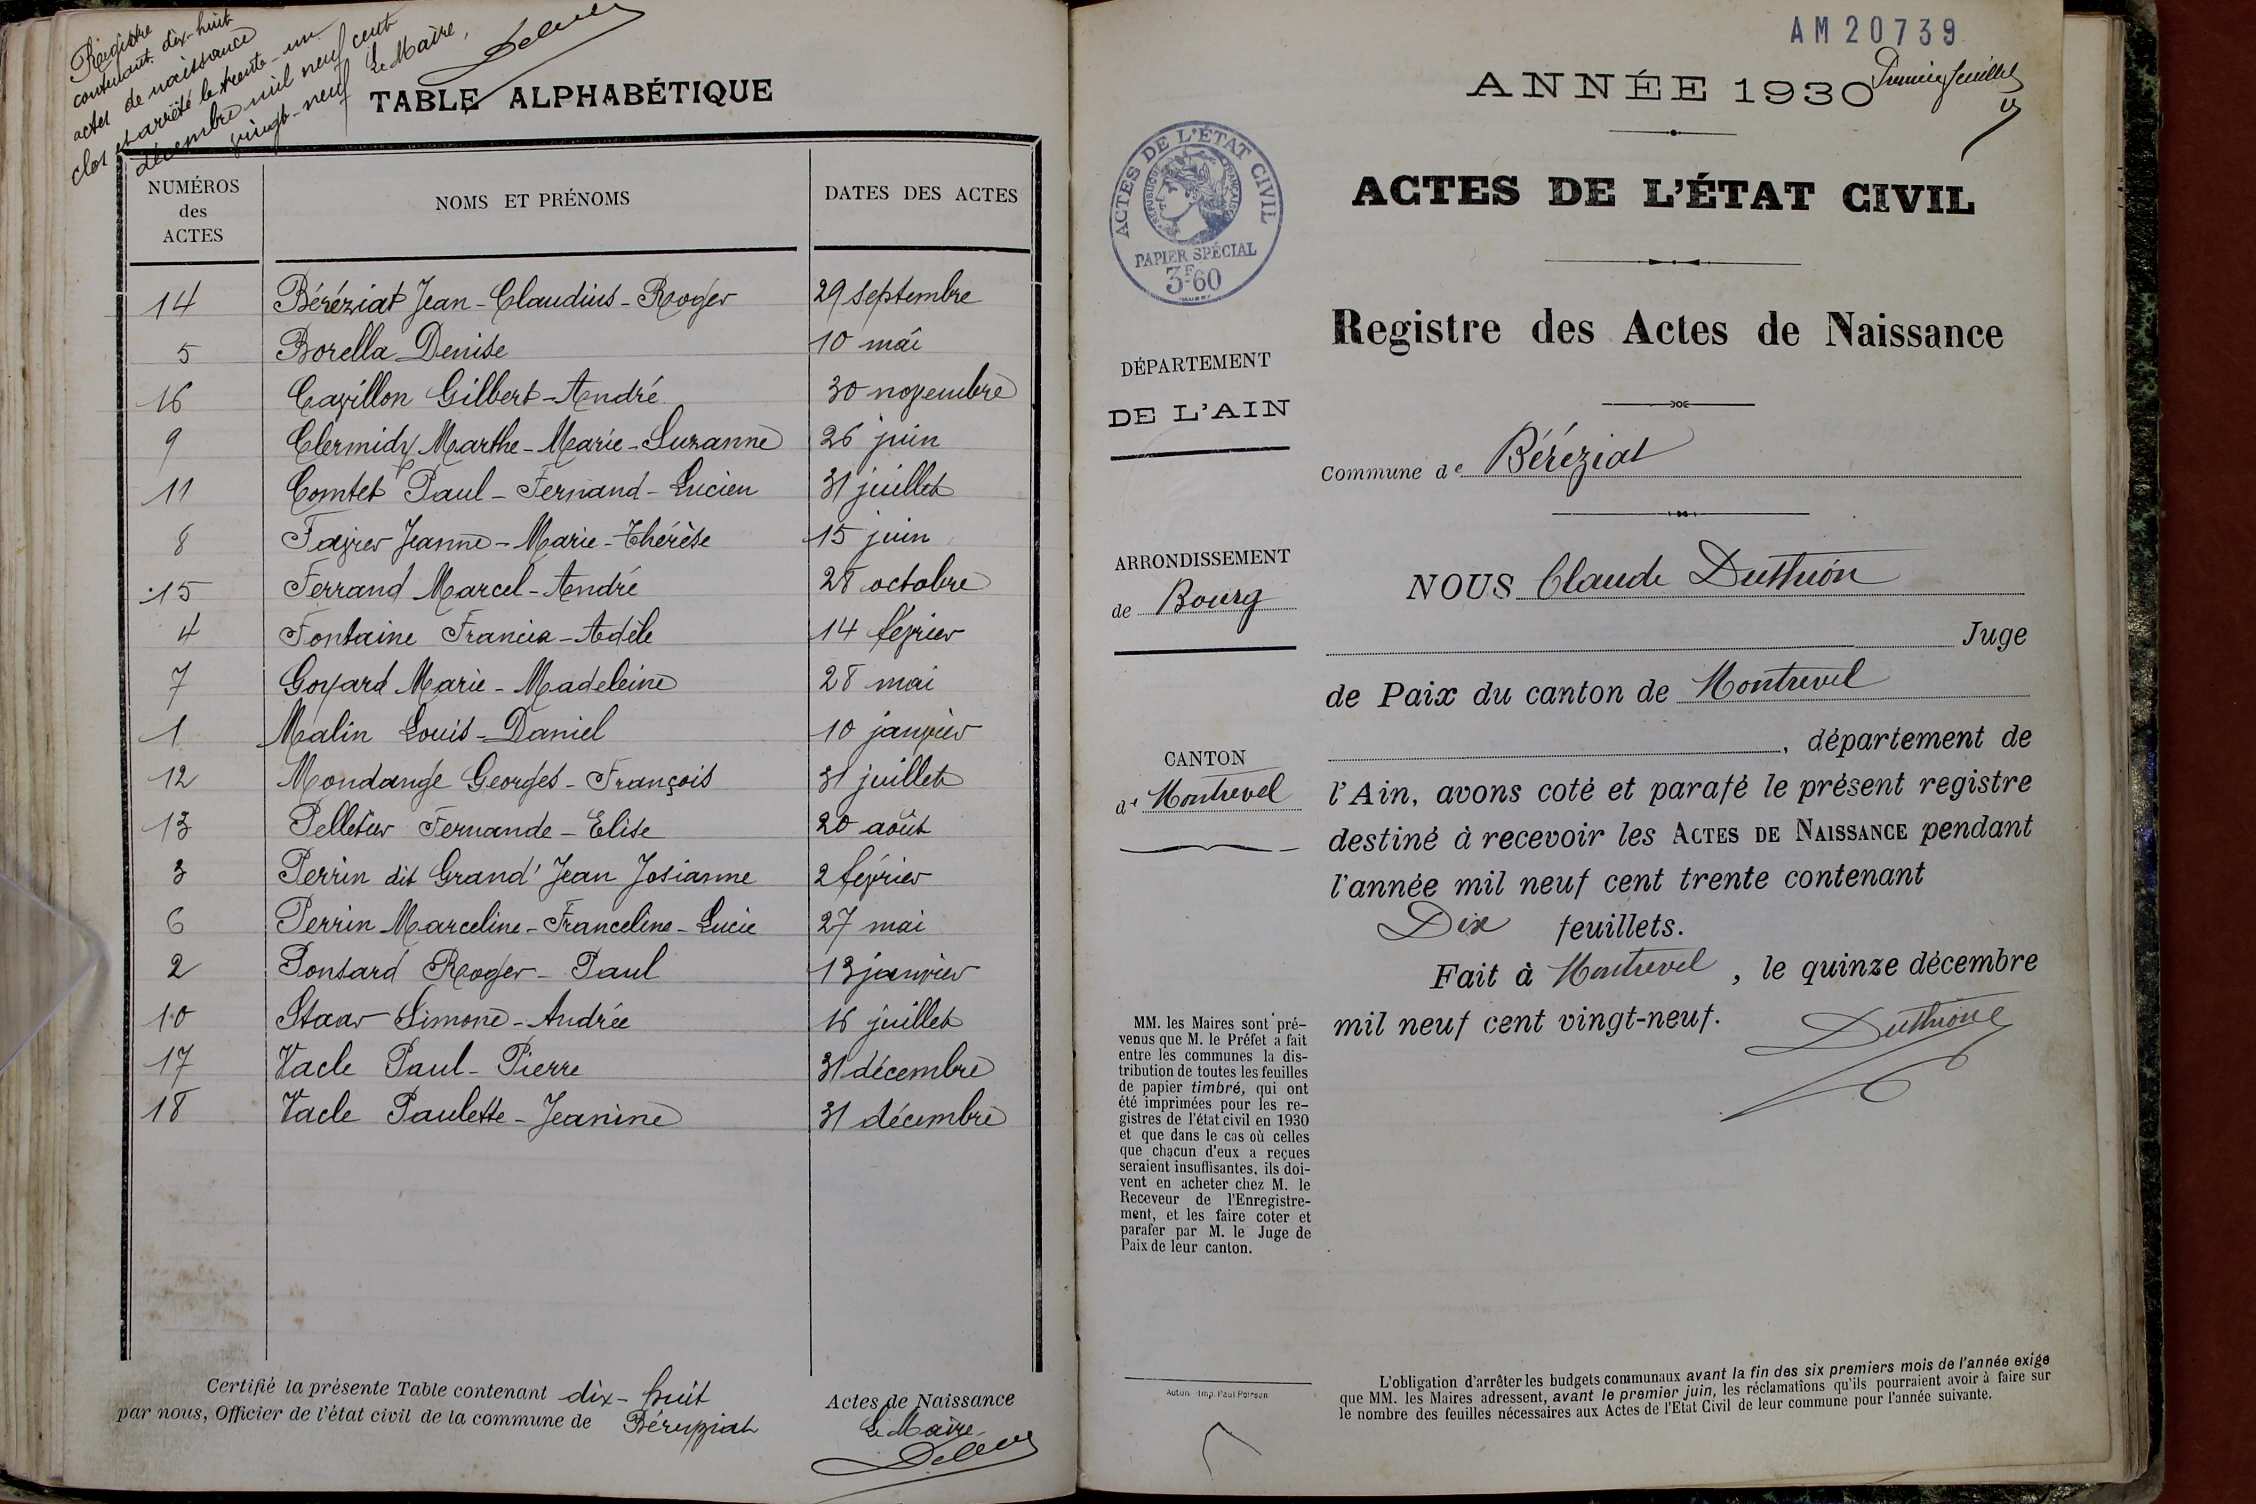 Registre
contenant dix-huit
actes de naissance
clos et arrêté le trente-un
décembre mil neuf cent
vingt-neuf Le Maire,
TABLE ALPHABÉTIQUE
NUMÉROS des ACTES NOMS ET PRÉNOMS DATES DES ACTES
14 Béréziat Jean-Claudius-Roger 29 septembre
5 Borella Denise 10 mai
16 Cavillon Gilbert-André 30 novembre
9 Clermidy Marthe-Marie-Suzanne 26 juin
11 Comtet Paul-Fernand-Lucien 31 juillet
8 Favier Jeanne-Marie-Thérèse 15 juin
15 Ferrand Marcel-André 28 octobre
4 Fontaine Francia-Adèle 14 février
7 Goyard Marie-Madeleine 28 mai
1 Malin Louis-Daniel 10 janvier
12 Mondange Georges-François 31 juillet
13 Pelletier Fernande-Elise 20 août
3 Perrin dit Grand'Jean Josianne 2 février
6 Perrin Marceline-Franceline-Lucie 27 mai
2 Ponsard Roger-Paul 13 janvier
10 Staar Simone-Andrée 16 juillet
17 Vacle Paul-Pierre 31 décembre
18 Vacle Paulette-Jeanine 31 décembre
Certifié la présente Table contenant dix-huit Actes de Naissance
par nous, Officier de l'état civil de la commune de Béréziat Le Maire
AM20739
ANNÉE 1930
Premier feuillet
ACTES DE L'ÉTAT CIVIL
ACTES DE L'ÉTAT CIVIL
RÉPUBLIQUE FRANÇAISE
PAPIER SPÉCIAL
3F60
Registre des Actes de Naissance
DÉPARTEMENT
DE L'AIN
Commune de Béréziat
ARRONDISSEMENT
de Bourg
NOUS Claude Duthion
Juge
de Paix du canton de Montrevel
, département de
CANTON
de Montrevel
l'Ain, avons coté et parafé le présent registre
destiné à recevoir les ACTES DE NAISSANCE pendant
l'année mil neuf cent trente contenant
Dix feuillets.
Fait à Montrevel, le quinze décembre
mil neuf cent vingt-neuf.
Duthion
MM. les Maires sont pré-
venus que M. le Préfet a fait
entre les communes la dis-
tribution de toutes les feuilles
de papier timbré, qui ont
été imprimées pour les re-
gistres de l'état civil en 1930
et que dans le cas où celles
que chacun d'eux a reçues
seraient insuffisantes, ils doi-
vent en acheter chez M. le
Receveur de l'Enregistre-
ment, et les faire coter et
parafer par M. le Juge de
Paix de leur canton.
Autun - Imp. Paul Poirson
L'obligation d'arrêter les budgets communaux avant la fin des six premiers mois de l'année exige
que MM. les Maires adressent, avant le premier juin, les réclamations qu'ils pourraient avoir à faire sur
le nombre des feuilles nécessaires aux Actes de l'Etat Civil de leur commune pour l'année suivante.